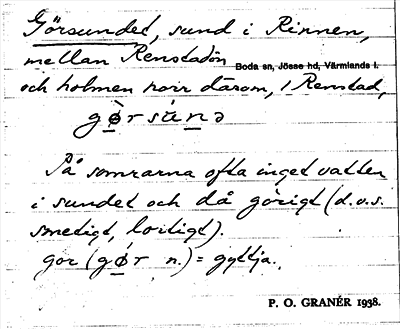 Görsundet, sund i Rinnen,
mellan Renstadön Boda sn, Jösse hd, Värmlands l.
och holmen norr därom, i Renstad,
gø̀rsunə
På somrarna ofta inget vatten
i sundet och då görigt (d.v.s.
smetigt, lortigt).
gor (gǿr n.) = gyttja.
P. O. GRANÉR 1938.